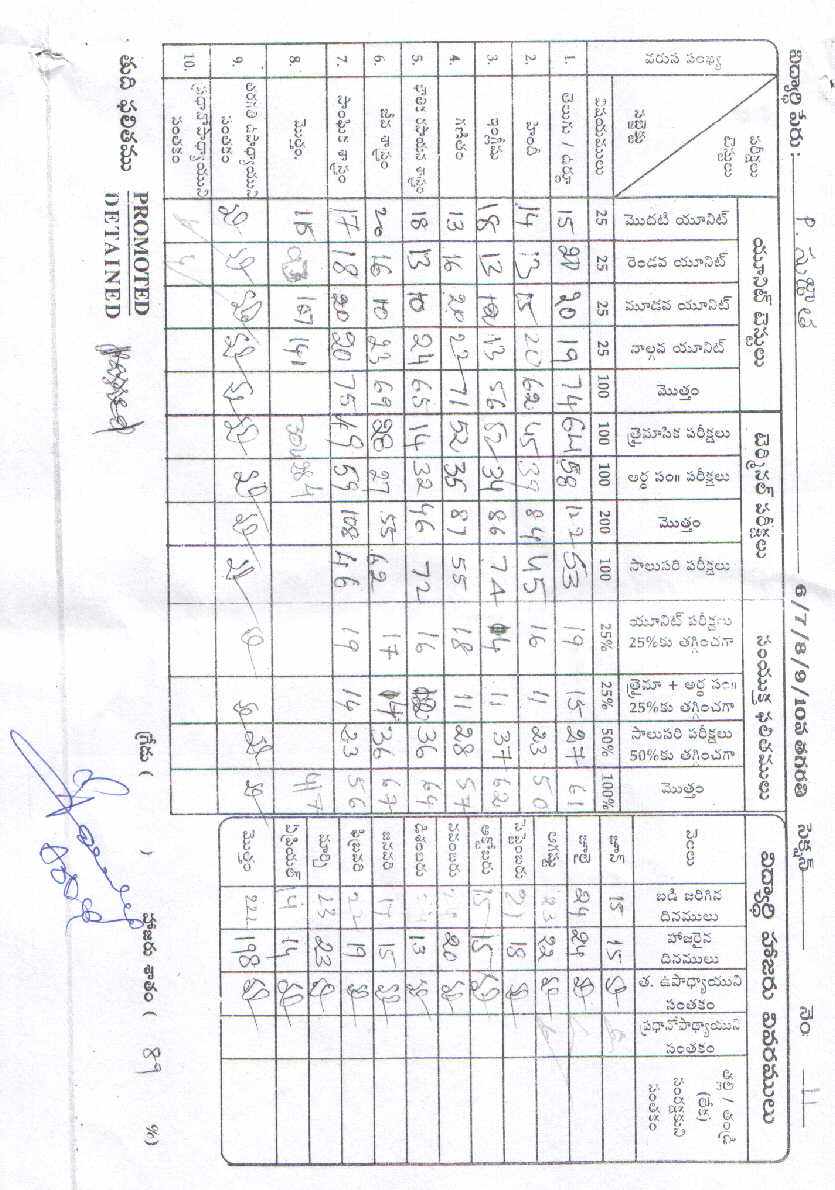 విద్యార్థి పేరు : P. సుజాత 6/7/8/9/10వ తరగతి సెక్షన్ నెం 41
వరుస సంఖ్య పరీక్షలు టెస్టులు సబ్జెక్టు విషయములు యూనిట్ టెస్టులు టెర్మినల్ పరీక్షలు సంయుక్త ఫలితములు
మొదటి యూనిట్ రెండవ యూనిట్ మూడవ యూనిట్ నాల్గవ యూనిట్ మొత్తం త్రైమాసిక పరీక్షలు అర్థ సం॥ పరీక్షలు మొత్తం సాలుసరి పరీక్షలు యూనిట్ పరీక్షలు 25%కు తగ్గించగా త్రైమా + అర్థ సం॥ 25%కు తగ్గించగా సాలుసరి పరీక్షలు 50%కు తగ్గించగా మొత్తం
25 25 25 25 100 100 100 200 100 25% 25% 50% 100%
1. తెలుగు / ఉర్దూ 15 20 20 19 74 64 58 122 53 19 15 27 61
2. హిందీ 14 13 15 20 62 45 39 84 45 16 11 23 50
3. ఇంగ్లీషు 18 13 13 56 52 34 86 74 14 11 37 62
4. గణితం 13 16 20 22 71 52 35 87 55 18 11 28 57
5. భౌతిక రసాయన శాస్త్రం 18 13 10 24 65 14 32 46 72 16 36
6. జీవ శాస్త్రం 20 16 10 23 69 28 27 55 62 17 14 36 67
7. సాంఘిక శాస్త్రం 17 18 20 20 75 49 59 108 46 19 14 23 56
8. మొత్తం 115 107 141 284 417
9. తరగతి ఉపాధ్యాయుని సంతకం
10. ప్రధానోపాధ్యాయుని సంతకం
తుది ఫలితము PROMOTED
DETAINED passed
గ్రేడు ( ) హాజరు శాతం ( 89 %)
విద్యార్థి హాజరు వివరములు
నెలలు బడి జరిగిన దినములు హాజరైన దినములు త. ఉపాధ్యాయుని సంతకం ప్రధానోపాధ్యాయుని సంతకం తల్లి / తండ్రి (లేక) సంరక్షకుని సంతకం
జూన్ 15 15
జూలై 24 24
ఆగష్టు 23 22
సెప్టెంబరు 21 18
అక్టోబరు 15 15
నవంబరు 20
డిశంబరు 13
జనవరి 17 15
ఫిబ్రవరి 22 19
మార్చి 23 23
ఏప్రియల్ 14 14
మొత్తం 222 198